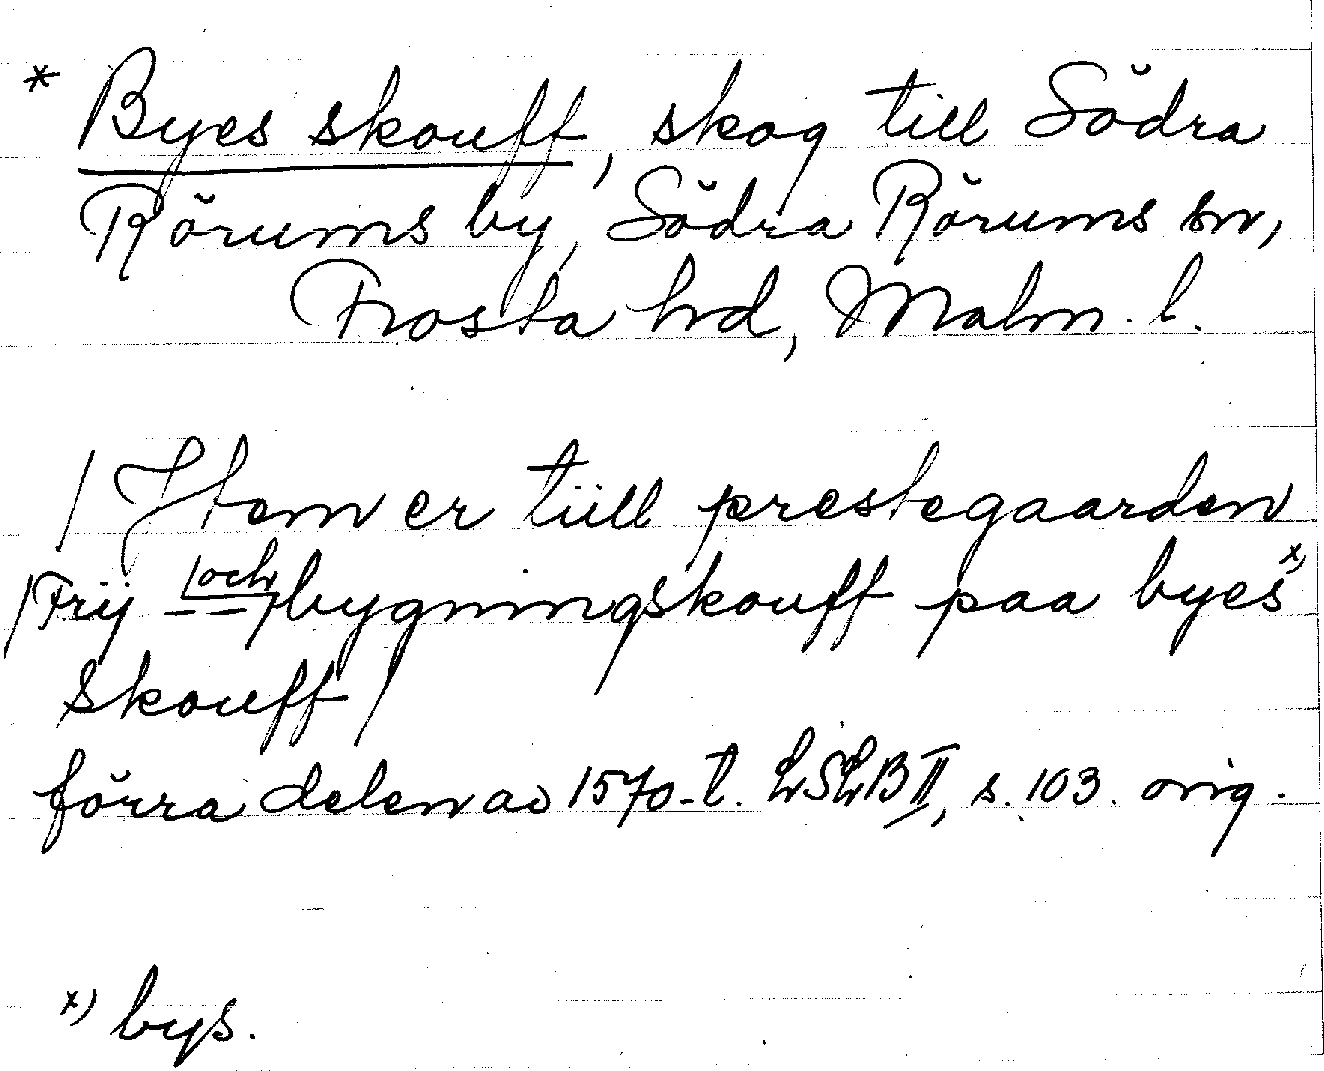 * Byes skouff, skog till Södra
Rörums by, Södra Rörums sn,
Frosta hd, Malm. l.
/ Jtem er tiill prestegaarden
/ Frij /och/ bygningskouff paa byes x)
skouff /
förra delen av 1570-t. LSLB II, s. 103. orig.
x) bys.